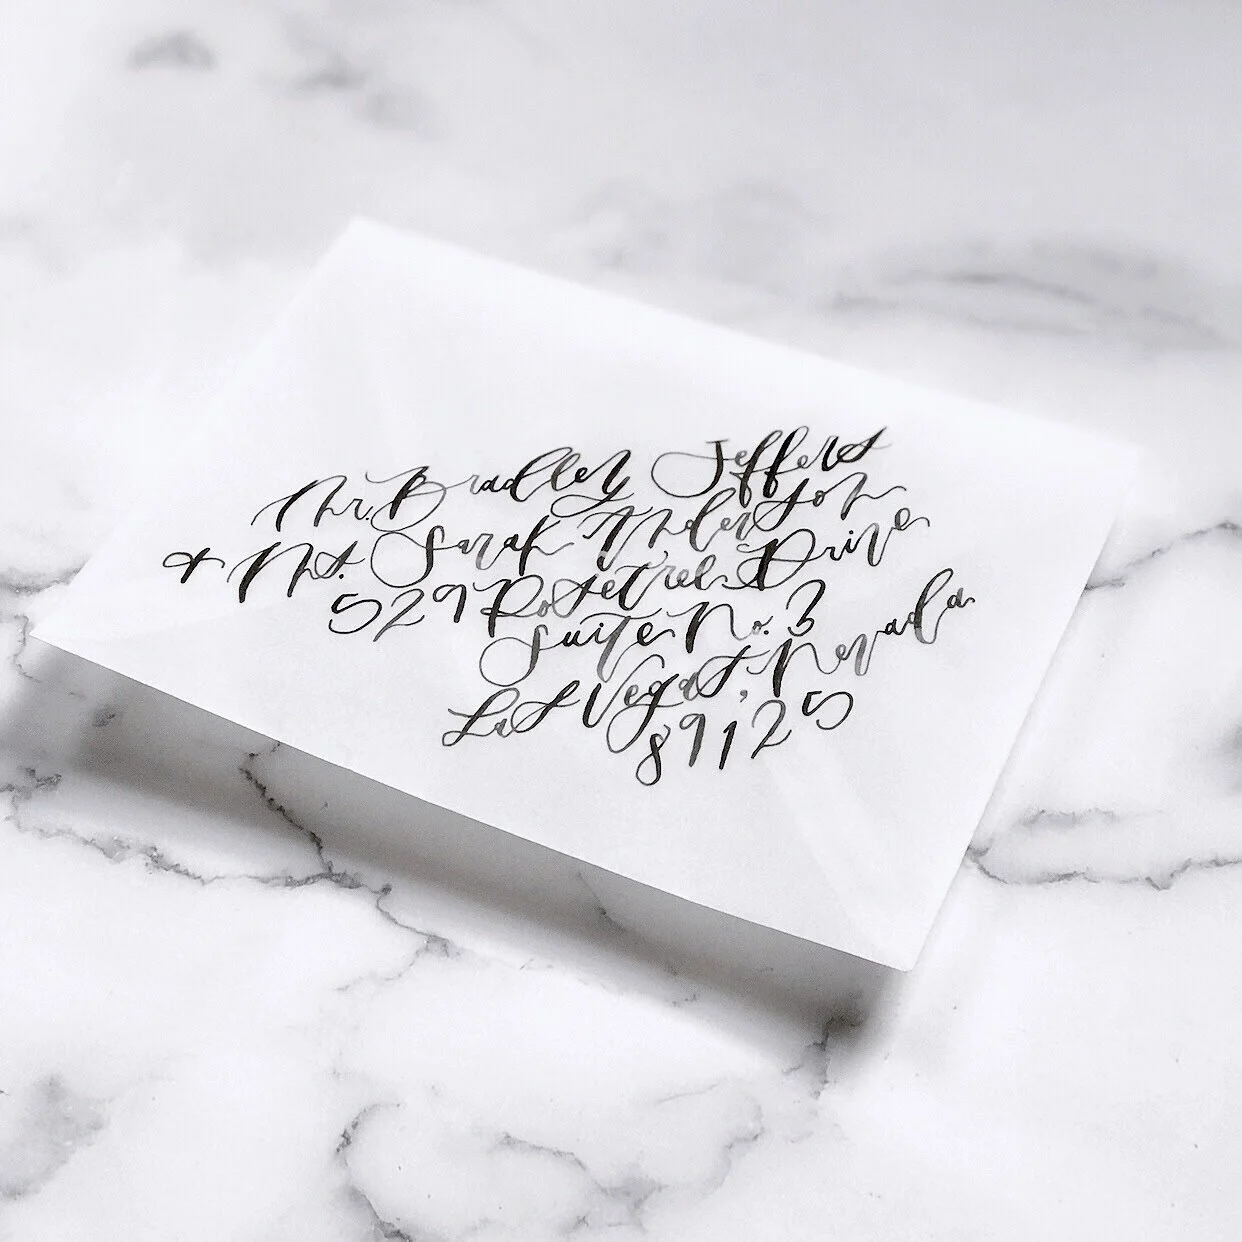 Mr. Bradley Jeffers
+ Ms. Sarah Anderson
529 Rosetree Drive
Suite No. 3
Las Vegas, Nevada
89125